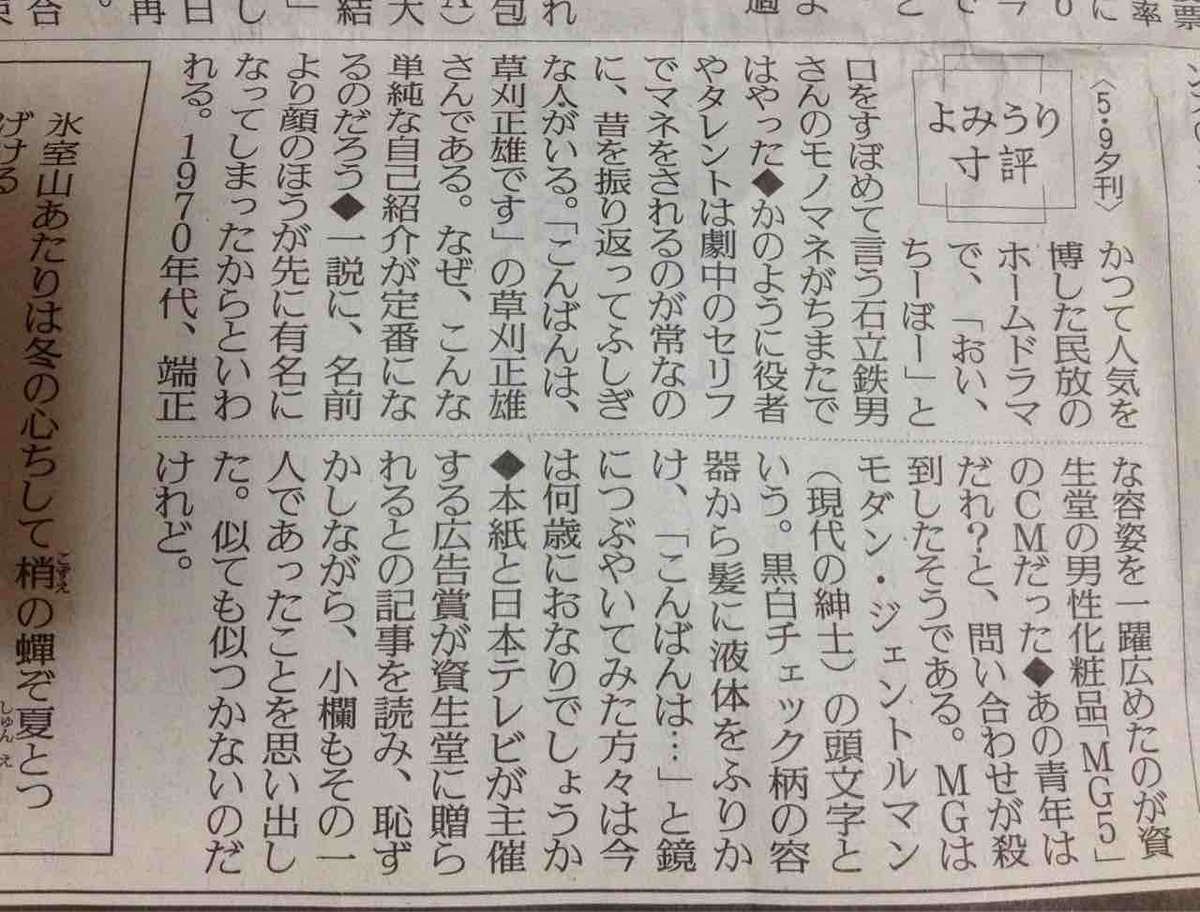 よみうり
寸評
〈5・9夕刊〉
かつて人気を
博した民放の
ホームドラマ
で、「おい、
ちーぼー」と
口をすぼめて言う石立鉄男
さんのモノマネがちまたで
はやった◆かのように役者
やタレントは劇中のセリフ
でマネをされるのが常なの
に、昔を振り返ってふしぎ
な人がいる。「こんばんは、
草刈正雄です」の草刈正雄
さんである。なぜ、こんな
単純な自己紹介が定番にな
るのだろう◆一説に、名前
より顔のほうが先に有名に
なってしまったからといわ
れる。1970年代、端正
な容姿を一躍広めたのが資
生堂の男性化粧品「MG5」
のCMだった◆あの青年は
だれ?と、問い合わせが殺
到したそうである。MGは
モダン・ジェントルマン
（現代の紳士）の頭文字と
いう。黒白チェック柄の容
器から髪に液体をふりか
け、「こんばんは…」と鏡
につぶやいてみた方々は今
は何歳におなりでしょうか
◆本紙と日本テレビが主催
する広告賞が資生堂に贈ら
れるとの記事を読み、恥ず
かしながら、小欄もその一
人であったことを思い出し
た。似ても似つかないのだ
けれど。
氷室山あたりは冬の心ちして梢の蟬ぞ夏とつ
こずえ
げける
しゅんえ